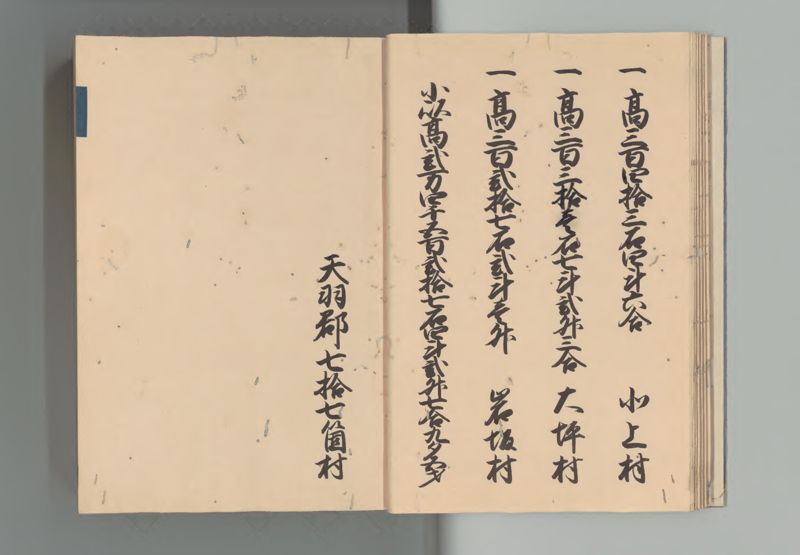 一高三百四拾三石四斗六合　小上村
一高三百三拾壱石七斗弐升三合　大坪村
一高三百弐拾七石弐斗壱升　岩坂村
小以高弐万四千五百弐拾七石四斗弐升七合九夕壱才
天羽郡七拾七箇村